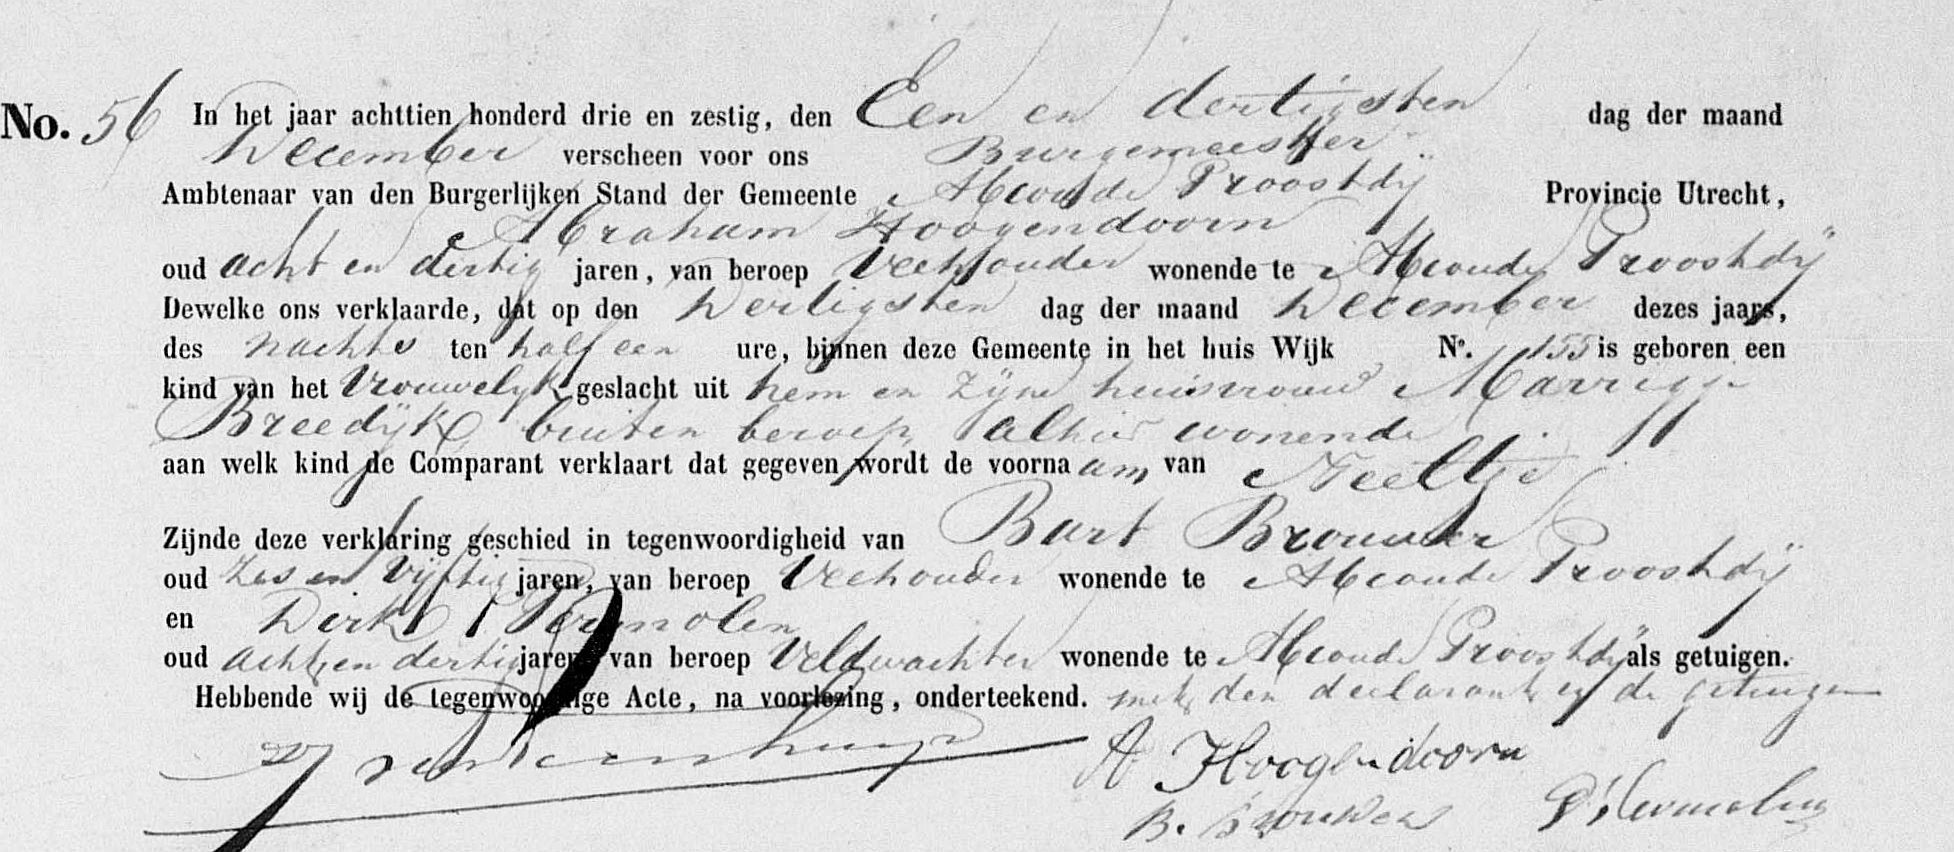 No. 56 In het jaar achttien honderd drie en zestig, den Een en dertigsten dag der maand
December verscheen voor ons Burgemeester
Ambtenaar van den Burgerlijken Stand der Gemeente Abcoude Proostdij Provincie Utrecht,
Abraham Hoogendoorn
oud acht en dertig jaren, van beroep Veehouder wonende te Abcoude Proostdij
Dewelke ons verklaarde, dat op den dertigsten dag der maand December dezes jaars,
des nachts ten half een ure, binnen deze Gemeente in het huis Wijk No. 155 is geboren een
kind van het Vrouwelyk geslacht uit hem en zyne huisvrouw Marrigje
Breedÿk buiten beroep alhier wonende
aan welk kind de Comparant verklaart dat gegeven wordt de voorna am van Neeltje
Zijnde deze verklaring geschied in tegenwoordigheid van Bart Brouwer
oud Zes en Vijftig jaren, van beroep Veehouder wonende te Abcoude Proostdij
en Dirk Vermolen
oud acht en dertig jaren van beroep Veldwachter wonende te Abcoude Proostdij als getuigen.
Hebbende wij de tegenwoordige Acte, na voorlezing, onderteekend. met den declarant en de getuigen
A Hoogendoorn
B. Brouwer D Vermolen